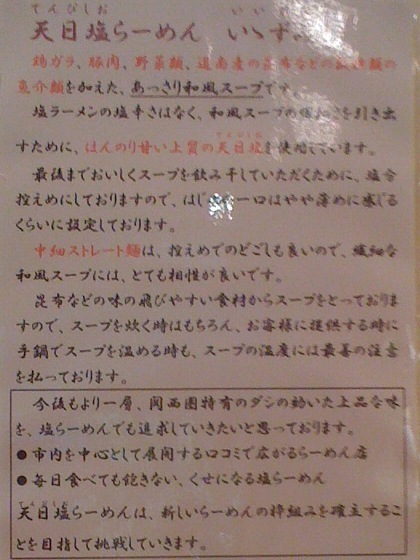 てんぴしお
天日塩らーめん
鶏ガラ、豚肉、野菜類、道南産の昆布などの
魚介類を加えた、あっさり和風スープです。
塩ラーメンの塩辛さはなく、和風スープの を引き出
すために、ほんのり甘い上質の天日塩を使用しています。
最後までおいしくスープを飲み干していただくために、塩合
控えめにしておりますので、はじめの一口はやや薄めに感じる
くらいに設定しております。
中細ストレート麺は、控えめでのどごしも良いので、繊細な
和風スープには、とても相性が良いです。
昆布などの味の飛びやすい食材からスープをとっておりま
すので、スープを炊く時はもちろん、お客様に提供する時に
手鍋でスープを温める時も、スープの温度には最善の注意
を払っております。
今後もより一層、関西圏特有のダシの効いた上品な味
を、塩らーめんでも追求していきたいと思っております。
●市内を中心として展開する口コミで広がるらーめん店
●毎日食べても飽きない、くせになる塩らーめん
てんぴしお
天日塩らーめんは、新しいらーめんの枠組みを確立するこ
とを目指して挑戦していきます。